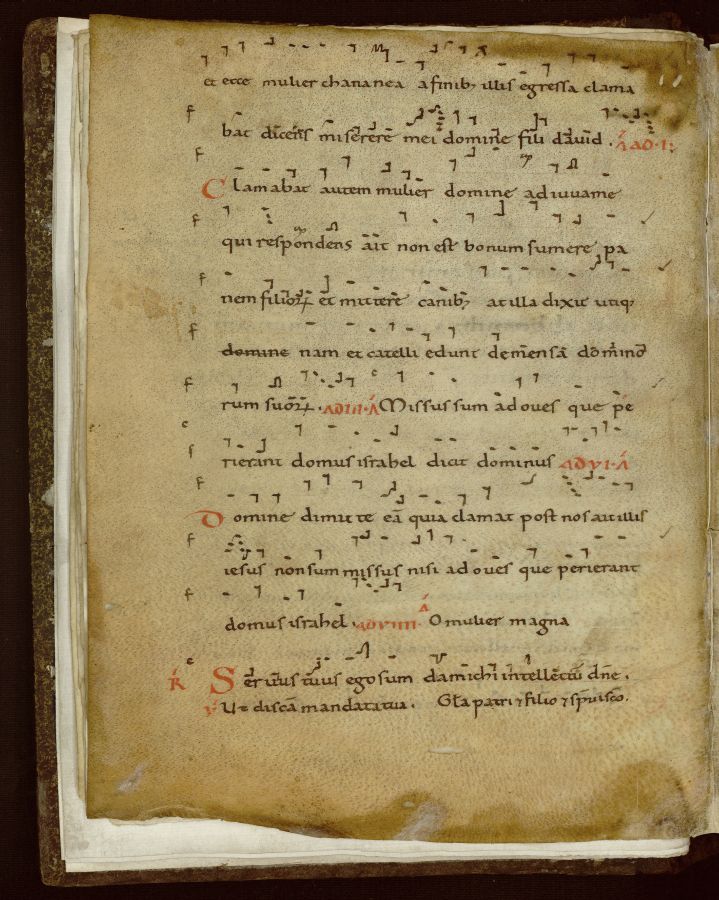 et ecce mulier chananea a finibꝫ illis egressa clama
bat dicens miserere mei domine fili dauid . A AD · I :
Clamabat autem mulier domine adiuuame
qui respondens ait non est bonum sumere pa
nem filiorꝝ et mittere canibꝫ at illa dixit utiqꝫ
domine nam et catelli edunt de mensa domino
rum suorꝝ . AD III · A Missus sum ad oues que pe
rierant domus israhel dicit dominus AD VI · A
Domine dimitte eā quia clamat post nos ait illis
iesus non sum missus nisi ad oues que perierant
domus israhel . AD VIIII · A O mulier magna
R Seruus tuus ego sum da michi intellectū dn̄e .
V Ut discā mandata tua . Gl̄a patri ⁊ filio ⁊ sp̄ui sc̄o .